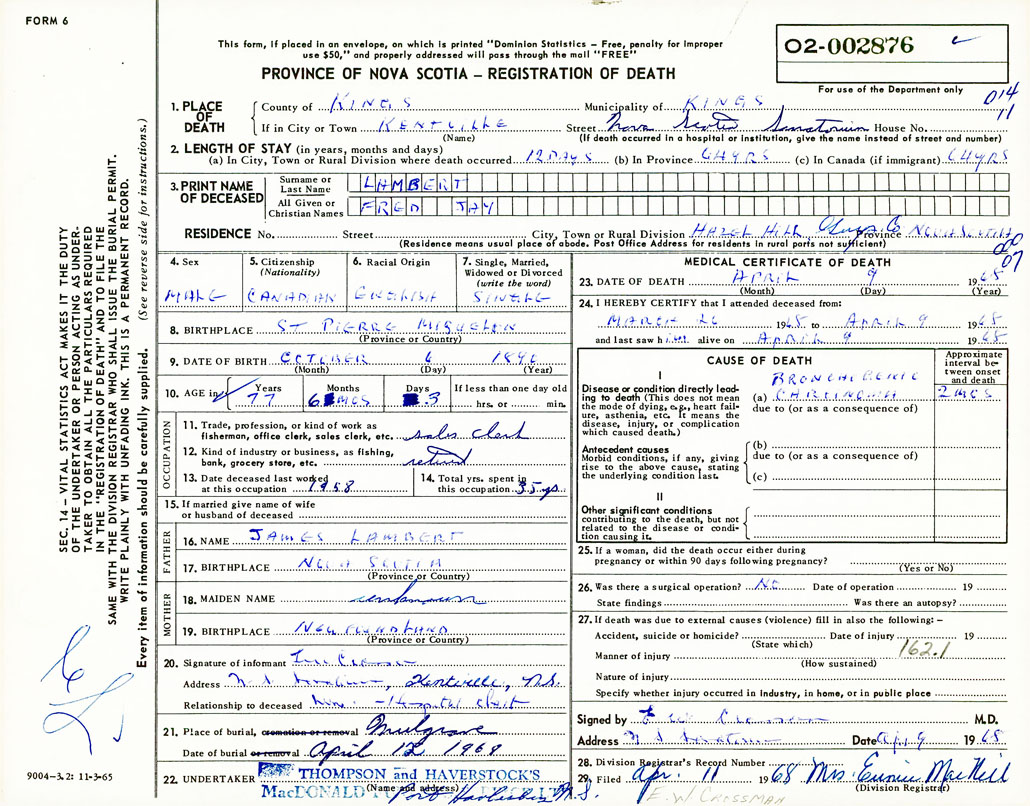 FORM 6
This form, if placed in an envelope, on which is printed "Dominion Statistics – Free, penalty for improper
use $50," and properly addressed will pass through the mail "FREE"
PROVINCE OF NOVA SCOTIA – REGISTRATION OF DEATH
O2-002876
For use of the Department only
014
11
1. PLACE OF DEATH
County of KINGS Municipality of KINGS
If in City or Town KENTVILLE Street Nova Scotia Sanatorium House No.
(Name) (If death occurred in a hospital or institution, give the name instead of street and number)
2. LENGTH OF STAY (in years, months and days)
(a) In City, Town or Rural Division where death occurred 12 DAYS (b) In Province 64 YRS (c) In Canada (if immigrant) 64 YRS
3. PRINT NAME OF DECEASED
Surname or Last Name LAMBERT
All Given or Christian Names FRED JAY
RESIDENCE No. Street City, Town or Rural Division HAZEL HILL Guys. Co Province NOVA SCOTIA
(Residence means usual place of abode. Post Office Address for residents in rural parts not sufficient)
07
4. Sex MALE
5. Citizenship (Nationality) CANADIAN
6. Racial Origin ENGLISH
7. Single, Married, Widowed or Divorced (write the word) SINGLE
8. BIRTHPLACE ST PIERRE MIQUELON
(Province or Country)
9. DATE OF BIRTH OCTOBER 6
(Month) (Day) (Year)
10. AGE in Years 77 Months 6 MOS Days 3 If less than one day old hrs. or min.
OCCUPATION
11. Trade, profession, or kind of work as fisherman, office clerk, sales clerk, etc. sales clerk
12. Kind of industry or business, as fishing, bank, grocery store, etc. retired
13. Date deceased last worked at this occupation 1958
14. Total yrs. spent in this occupation 35 yrs
15. If married give name of wife or husband of deceased
FATHER
16. NAME JAMES LAMBERT
17. BIRTHPLACE NOVA SCOTIA
(Province or Country)
MOTHER
18. MAIDEN NAME unknown
19. BIRTHPLACE NEWFOUNDLAND
(Province or Country)
20. Signature of informant
Address N S Sanatorium, Kentville, N.S.
Relationship to deceased None - Hospital chart
21. Place of burial, cremation or removal Mulgrave
Date of burial or removal April 12 1968
22. UNDERTAKER THOMPSON and HAVERSTOCK'S
(Name and address)
MacDONALD
Port Hawkesbury N.S.
MEDICAL CERTIFICATE OF DEATH
23. DATE OF DEATH APRIL 9 1968
(Month) (Day) (Year)
24. I HEREBY CERTIFY that I attended deceased from:
MARCH 26 1968 to APRIL 9 1968
and last saw him alive on APRIL 9 1968
CAUSE OF DEATH
Approximate interval between onset and death
I
Disease or condition directly leading to death (This does not mean the mode of dying, e.g., heart failure, asthenia, etc. It means the disease, injury, or complication which caused death.)
BRONCHIOGENIC
(a) CARCINOMA 2 MOS
due to (or as a consequence of)
Antecedent causes
Morbid conditions, if any, giving rise to the above cause, stating the underlying condition last.
(b)
due to (or as a consequence of)
(c)
II
Other significant conditions contributing to the death, but not related to the disease or condition causing it.
25. If a woman, did the death occur either during pregnancy or within 90 days following pregnancy?
(Yes or No)
26. Was there a surgical operation? NO Date of operation 19
State findings Was there an autopsy?
27. If death was due to external causes (violence) fill in also the following: –
Accident, suicide or homicide? Date of injury 19
(State which)
Manner of injury 162.1
(How sustained)
Nature of injury
Specify whether injury occurred in industry, in home, or in public place
Signed by E W Crossman M.D.
Address N S Sanatorium Date Ap 9 1968
28. Division Registrar's Record Number
29. Filed Apr. 11 1968 Mrs. Eunice MacNeill
(Division Registrar)
E. W. CROSSMAN
SEC. 14 – VITAL STATISTICS ACT MAKES IT THE DUTY
OF THE UNDERTAKER OR PERSON ACTING AS UNDER-
TAKER TO OBTAIN ALL THE PARTICULARS REQUIRED
IN THE "REGISTRATION OF DEATH" AND TO FILE THE
SAME WITH THE DIVISION REGISTRAR WHO SHALL ISSUE THE BURIAL PERMIT.
WRITE PLAINLY WITH UNFADING INK. THIS IS A PERMANENT RECORD.
Every item of information should be carefully supplied. (See reverse side for instructions.)
9004–3.2: 11-3-65